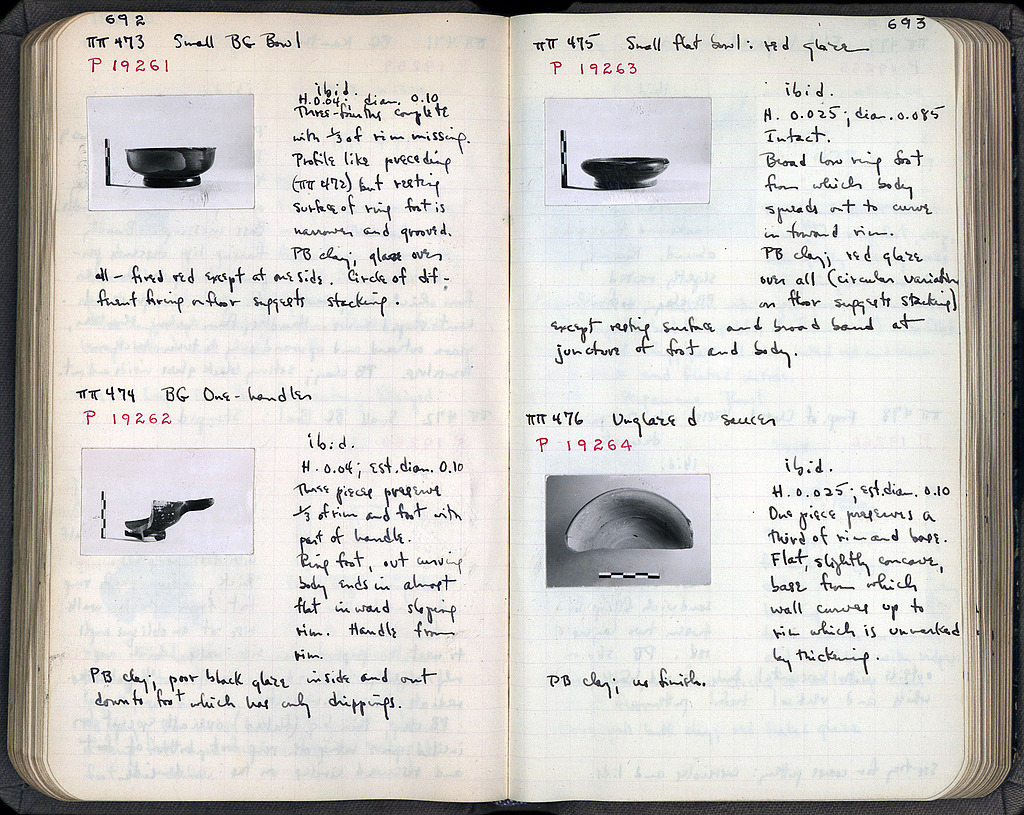 692
ΠΠ 473 Small BG Bowl
P 19261
ibid.
H. 0.04; diam. 0.10
Three-fourths complete
with ⅓ of rim missing.
Profile like preceding
(ΠΠ 472) but resting
surface of ring foot is
narrower and grooved.
PB clay; glaze over
all - fired red except at one side. Circle of dif-
ferent firing on floor suggests stacking.
ΠΠ 474 BG One-handler
P 19262
ibid.
H. 0.04; est. diam. 0.10
Three pieces preserve
⅓ of rim and foot with
part of handle.
Ring foot, out curving
body ends in almost
flat inward sloping
rim. Handle from
rim.
PB clay; poor black glaze inside and out
down to foot which has only drippings.
693
ΠΠ 475 Small flat bowl: red glaze
P 19263
ibid.
H. 0.025; diam. 0.085
Intact.
Broad low ring foot
from which body
spreads out to curve
in toward rim.
PB clay; red glaze
over all (circular variation
on floor suggests stacking)
except resting surface and broad band at
juncture of foot and body.
ΠΠ 476 Unglazed saucer
P 19264
ibid.
H. 0.025; est. diam. 0.10
One piece preserves a
third of rim and base.
Flat, slightly concave,
base from which
wall curves up to
rim which is unmarked
by thickening.
PB clay; no finish.